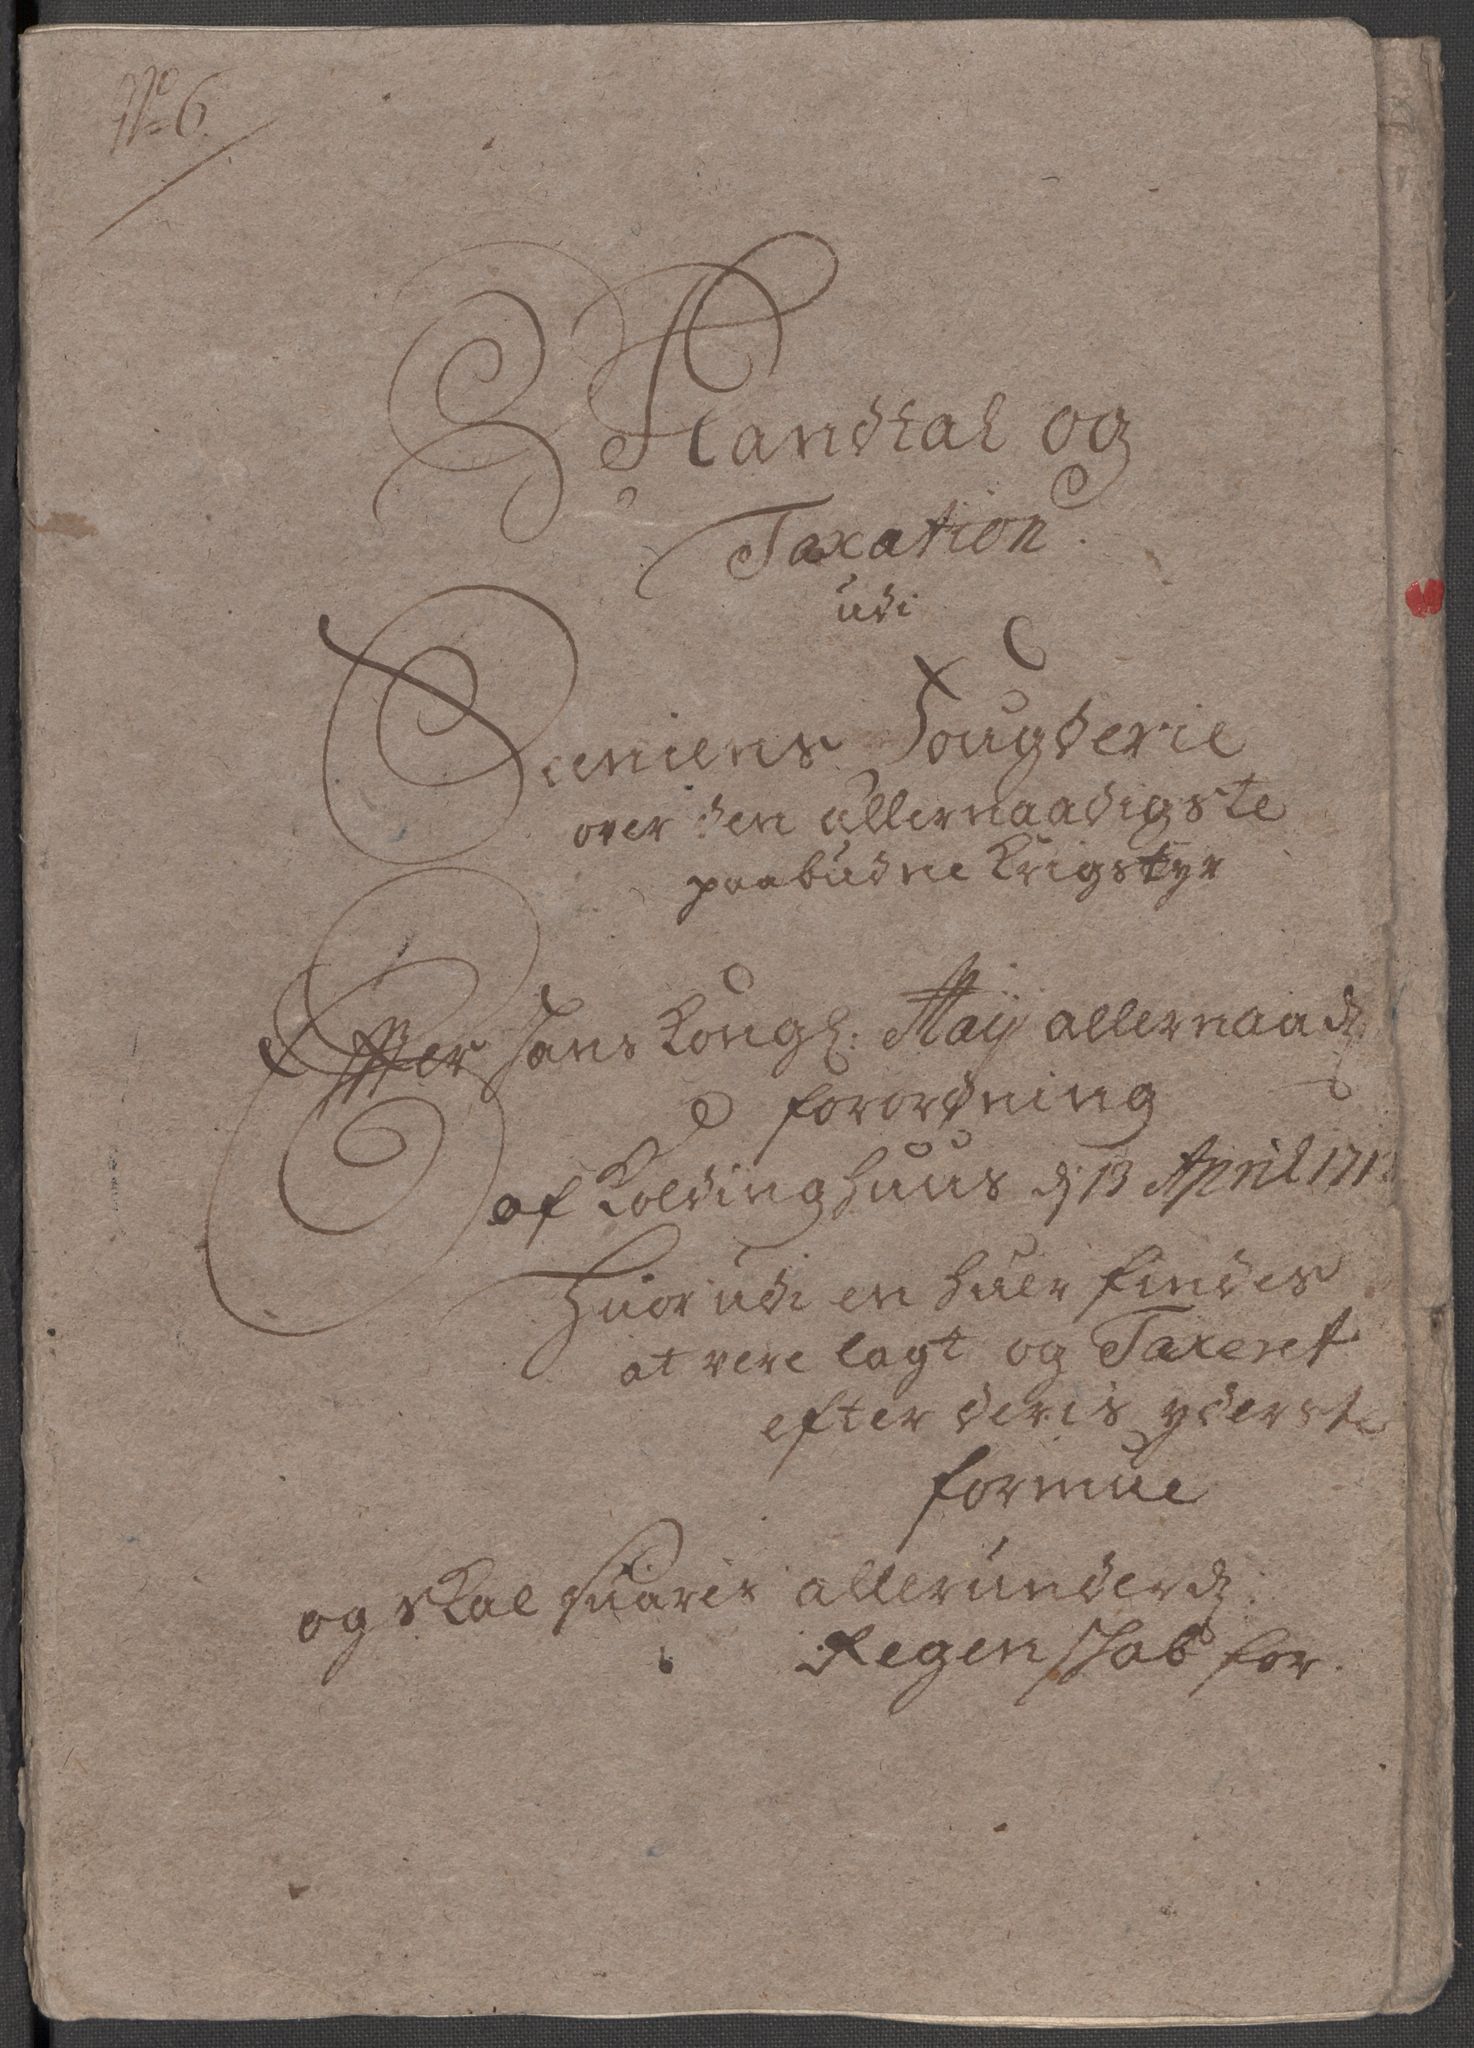 No 6.
Mandtal og
Taxation
udi
Seniens Fougderie
over den allernaadigste
paabudne Krigstyr
Effter Hans Kongl: Maij allernaad:
forordning
af Koldinghuus d: 13 April 1712
Huorudi en huer findes
at vere lagt og Taxeret
efter deris yderste
formue
og skal suarer allerunderd:
Regenskab for.